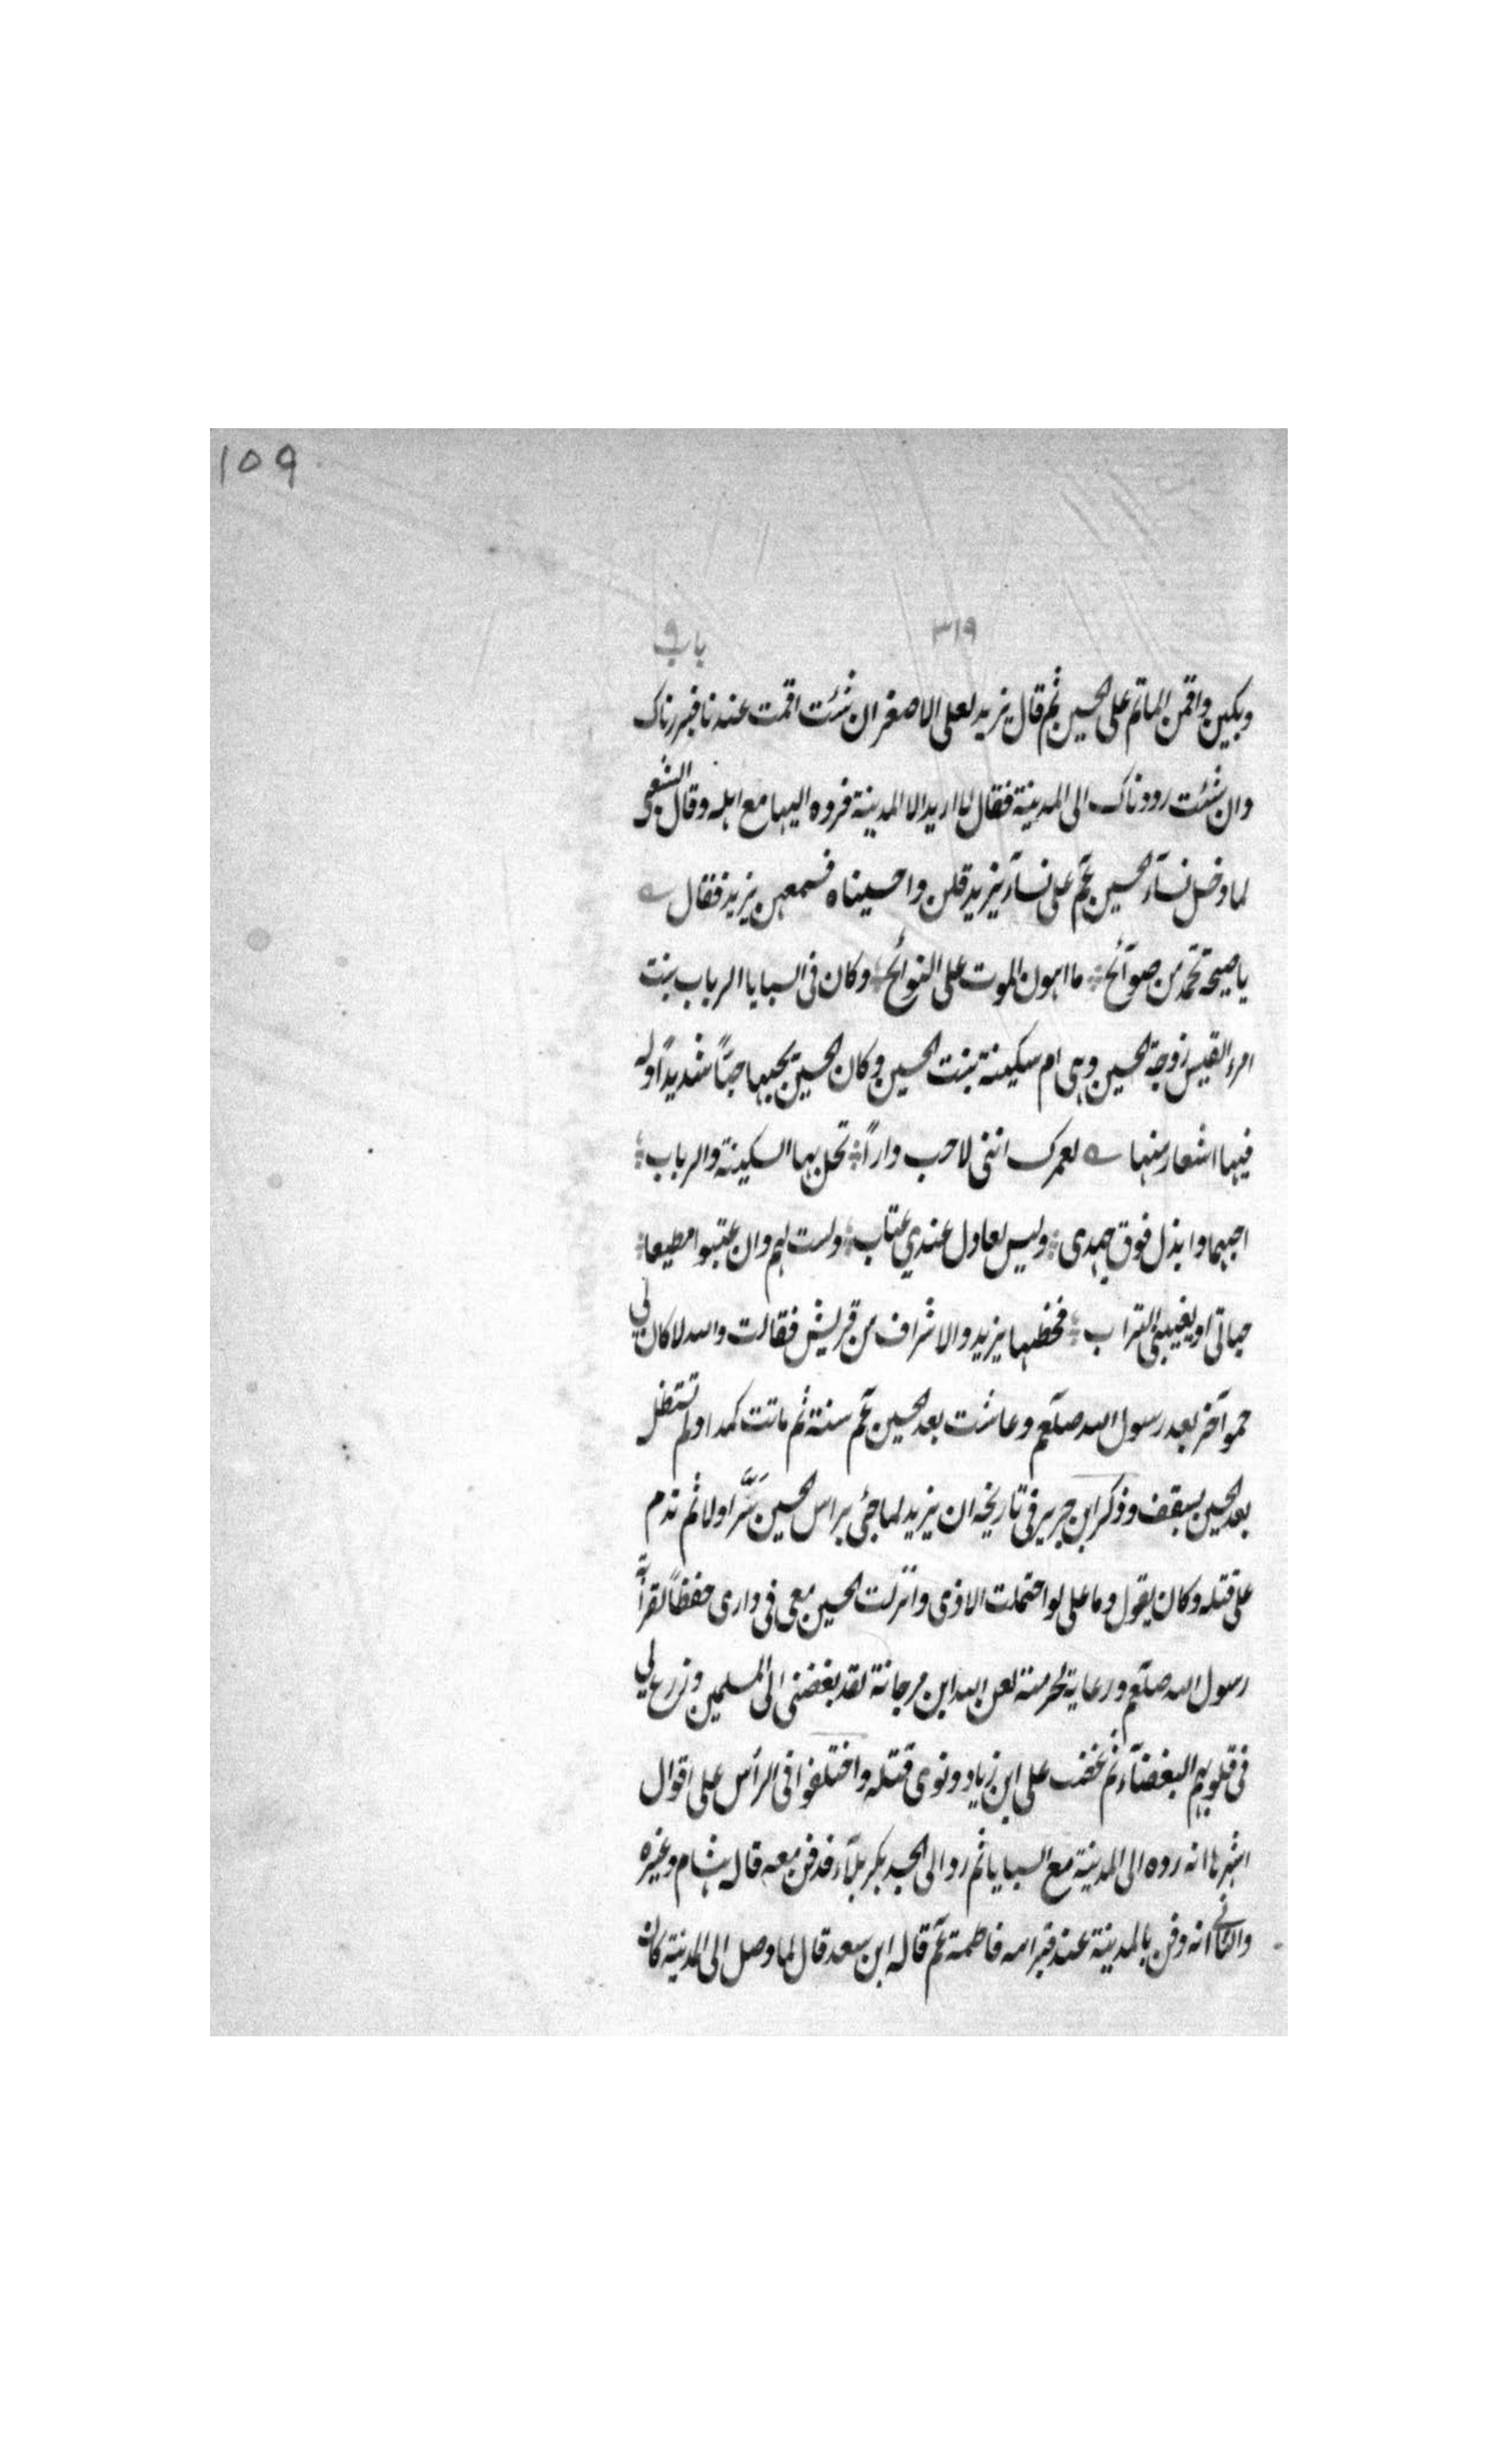 ١٥٩
٣١٩ باب ٩
وبكين واقمن الماتم على الحسين ثم قال يزيد لعلى الاصغر ان شئت اقمت عندنا فبررناك
وان شئت رددناك الى المدينة فقال لا اريد الا المدينة فرده اليها مع اهله وقال الشعبى
لما دخل نسآء الحسين عم على نسآء يزيد قلن واحسيناه فسمعهن يزيد فقال
يا صيحة تحمد من صوآئح ما اهون الموت على النوائح وكان فى السبايا الرباب بنت
امرء القيس زوجة الحسين وهى ام سكينة بنت الحسين وكان الحسين يحبها حبًا شديدًا وله
فيها اشعار منها لعمرك اننى لاحب دارًا تحل بها السكينة والرباب
احبهما وابذل فوق جهدى وليس لعاذل عندي عتاب ولست لهم وان عتبوا مطيعا
حياتى او يغيبنى التراب فخطبها يزيد والاشراف من قريش فقالت والله لا كان لي
حموا آخر بعد رسول الله صلعم وعاشت بعد الحسين عم سنة ثم ماتت كمدا ولم تستظل
بعد الحسين بسقف وذكر ابن جرير فى تاريخه ان يزيد لما جئ براس الحسين سُرَّ اولا ثم ندم
على قتله وكان يقول وما على لو احتملت الاذى وانزلت الحسين معى فى دارى حفظًا لقرابة
رسول الله صلعم ورعاية لحرمته لعن الله ابن مرجانة لقد بغضنى الى المسلمين وزرع لي
فى قلوبهم البغضآء ثم غضب على ابن زياد ونوى قتله واختلفوا فى الرأس على اقوال
اشهرها انه رده الى المدينة مع السبايا ثم رد الى الجسد بكربلآء فدفن معه قاله هشام وغيره
والثانے انه دفن بالمدينة عند قبر امه فاطمة عم قاله ابن سعد قال لما وصل الى المدينة كان